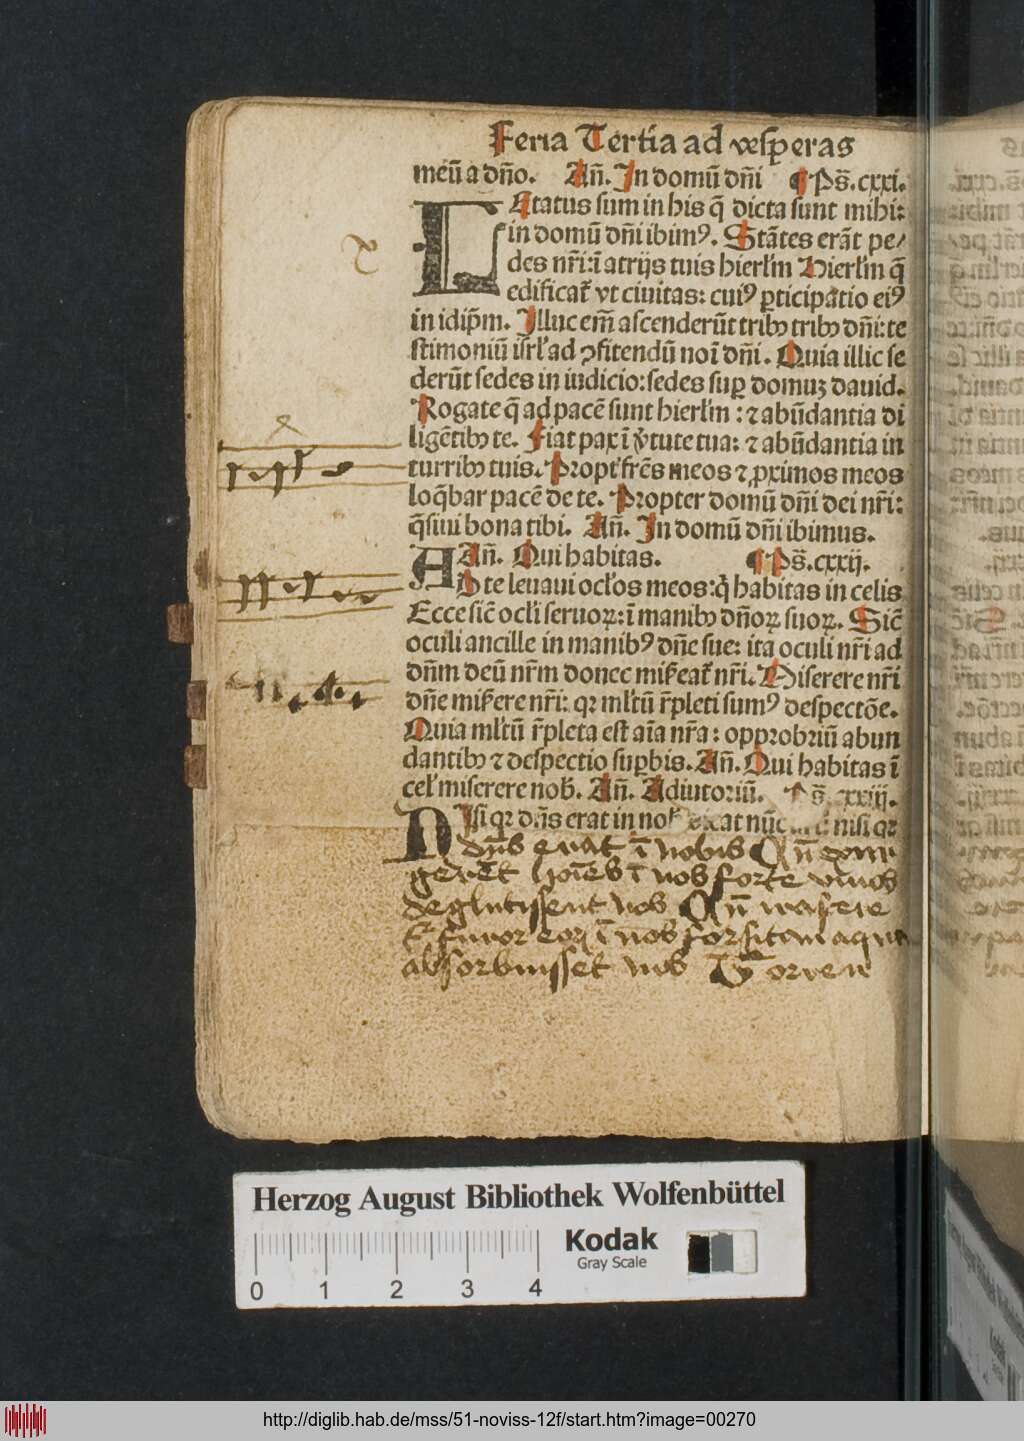 Feria Tertia ad vesꝑeras
meū a dño. Añ. In domū dñi ¶ Ps̄. cxxi.
LEtatus sum in his q̄ dicta sunt mihi:
in domū dñi ibimꝰ. Stātes erāt pe/
des nr̄i: ī atrijs tuis hierl̓m Hierl̓m q̄
edificat̄ vt ciuitas: cuiꝰ ꝑticipatio eiꝰ
in idip̄m. Illuc em̄ ascenderūt tribꝫ tribꝫ dñi: te
stimoniū isrl̓ ad ꝯfitendū noī dñi. Quia illic se
derūt sedes in iudicio: sedes suꝑ domuʒ dauid.
Rogate q̄ ad pacē sunt hierl̓m: ⁊ abūdantia di
ligētibꝫ te. Fiat pax ī v̓tute tua: ⁊ abūdantia in
turribꝫ tuis. Propt̓ fr̄es meos ⁊ ꝓximos meos
loq̄bar pacē de te. Propter domū dñi dei nr̄i:
q̄siui bona tibi. Añ. In domū dñi ibimus.
Añ. Qui habitas. ¶ Ps̄. cxxij.
AD te leuaui ocl̓os meos: q̓ habitas in celis
Ecce sic̄ ocl̓i seruoꝝ: ī manibꝫ dñoꝝ suoꝝ. Sic̄
oculi ancille in manibꝰ dñe sue: ita oculi nr̄i ad
dñm deū nr̄m donec mis̓eat̄ nr̄i. Miserere nr̄i
dñe mis̓ere nr̄i: qꝛ ml̓tū r̄pleti sumꝰ despectōe.
Quia ml̓tū r̄pleta est aīa nr̄a: opprobriū abun
dantibꝫ ⁊ despectio suꝑbis. Añ. Qui habitas ī
cel̓ miserere nob̓. Añ. Adiutoriū. Ps̄. cxxiij.
NIsi qꝛ dñs erat in nob̓ dicat nūc nisi qꝛ
dñs erat ī nobis Cū exur
gerēt hoīes ī nos forte viuos
deglutissent nos Cū irasere
t̄ furor eoꝝ ī nos forsitan aqua
absorbuisset nos Torren
Herzog August Bibliothek Wolfenbüttel
Kodak
Gray Scale
0 1 2 3 4
http://diglib.hab.de/mss/51-noviss-12f/start.htm?image=00270